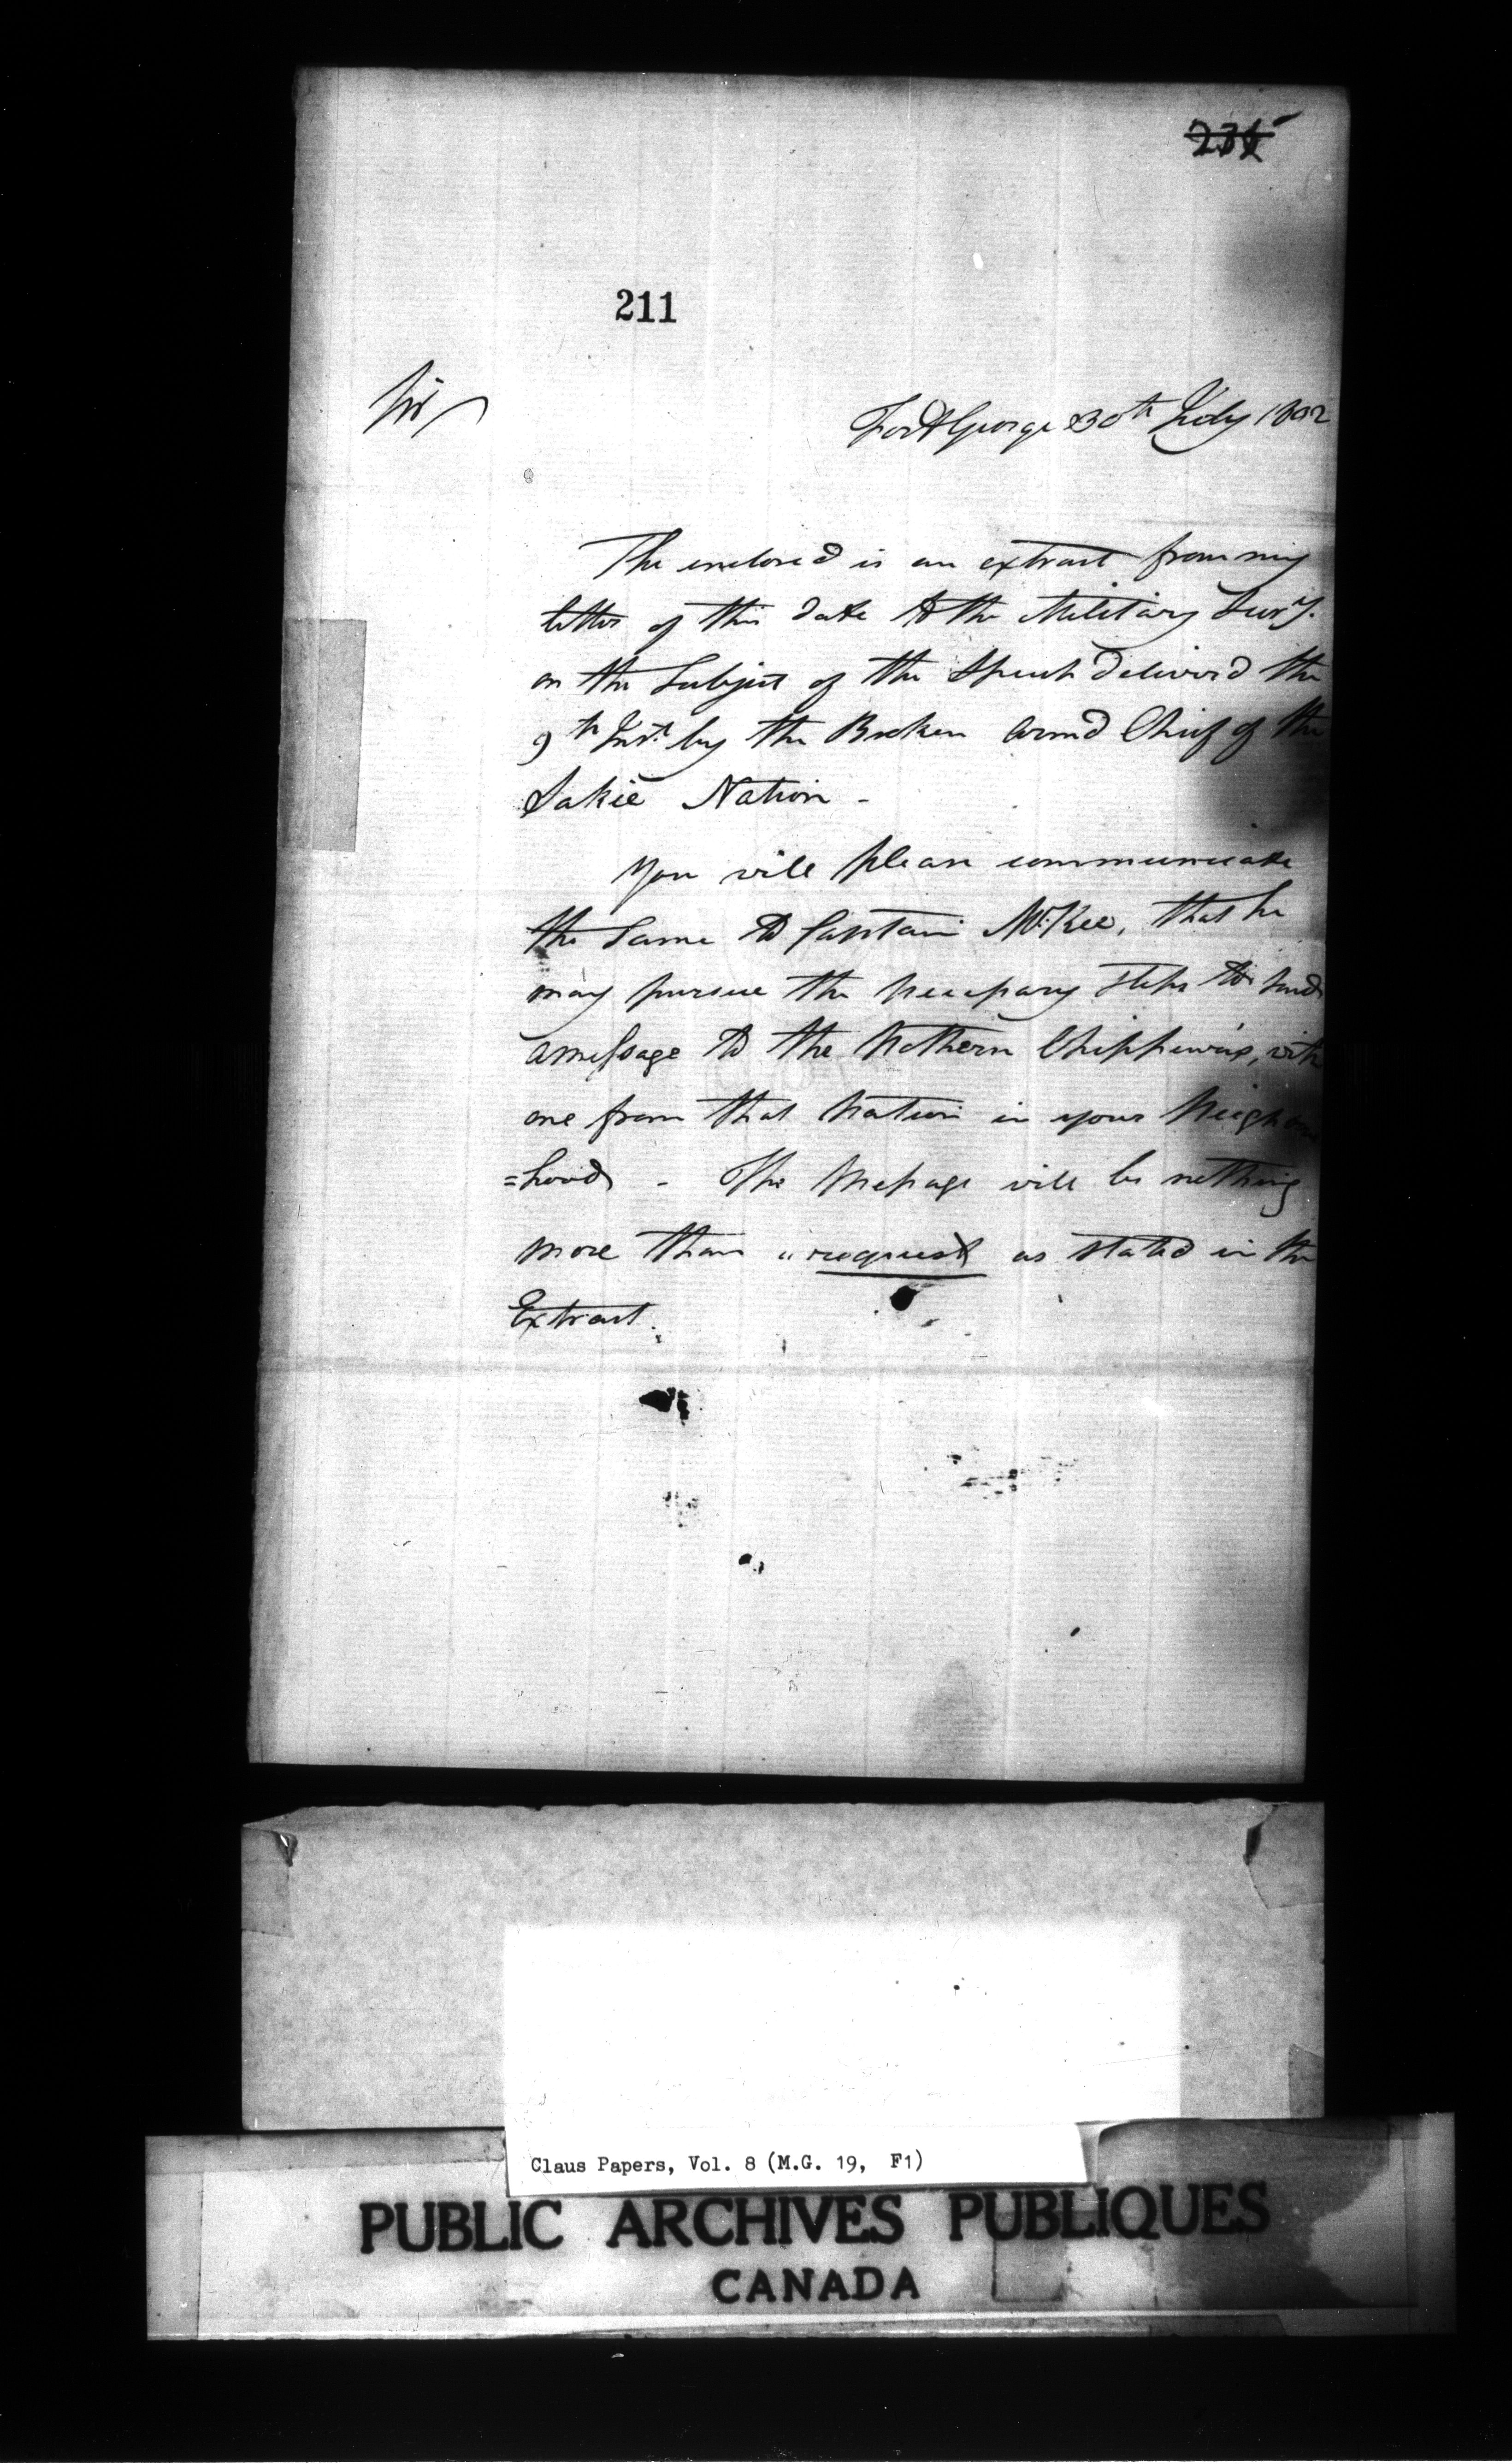 211
Sir
Fort George 30th July 1802
The enclosed is an extract from my
letter of this date to the Military Secry.
on the Subject of the Speech deliver'd the
9th Inst. by the Broken Arm'd Chief of the
Sakie Nation -
You will please communicate
the Same to Captain McKee, that he
may pursue the necessary steps to send
a message to the Nothern Chippewas, with
one from that Nation in your Neighbour
=hood - The Message will be nothing
more than a request as stated in the
Extract.
Claus Papers, Vol. 8 (M.G. 19, F1)
PUBLIC ARCHIVES PUBLIQUES
CANADA